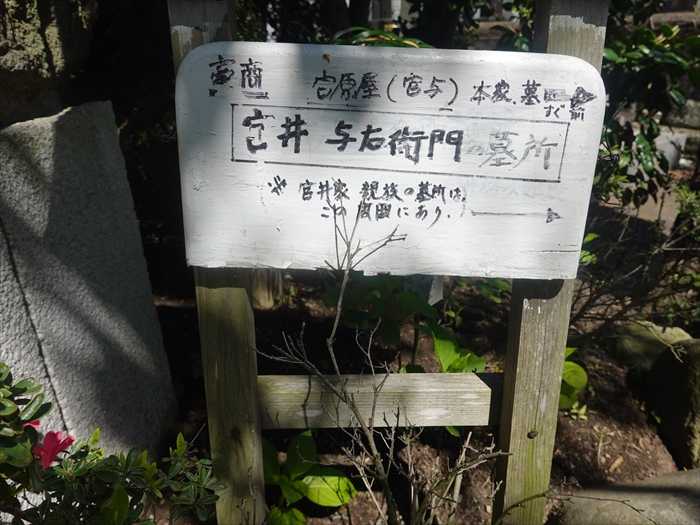 富商 宮原屋(宮与)本家.墓 すぐ前
宮井 与右衛門の墓所
(※ 宮井家 親族の墓所は、
この周囲にあり.)